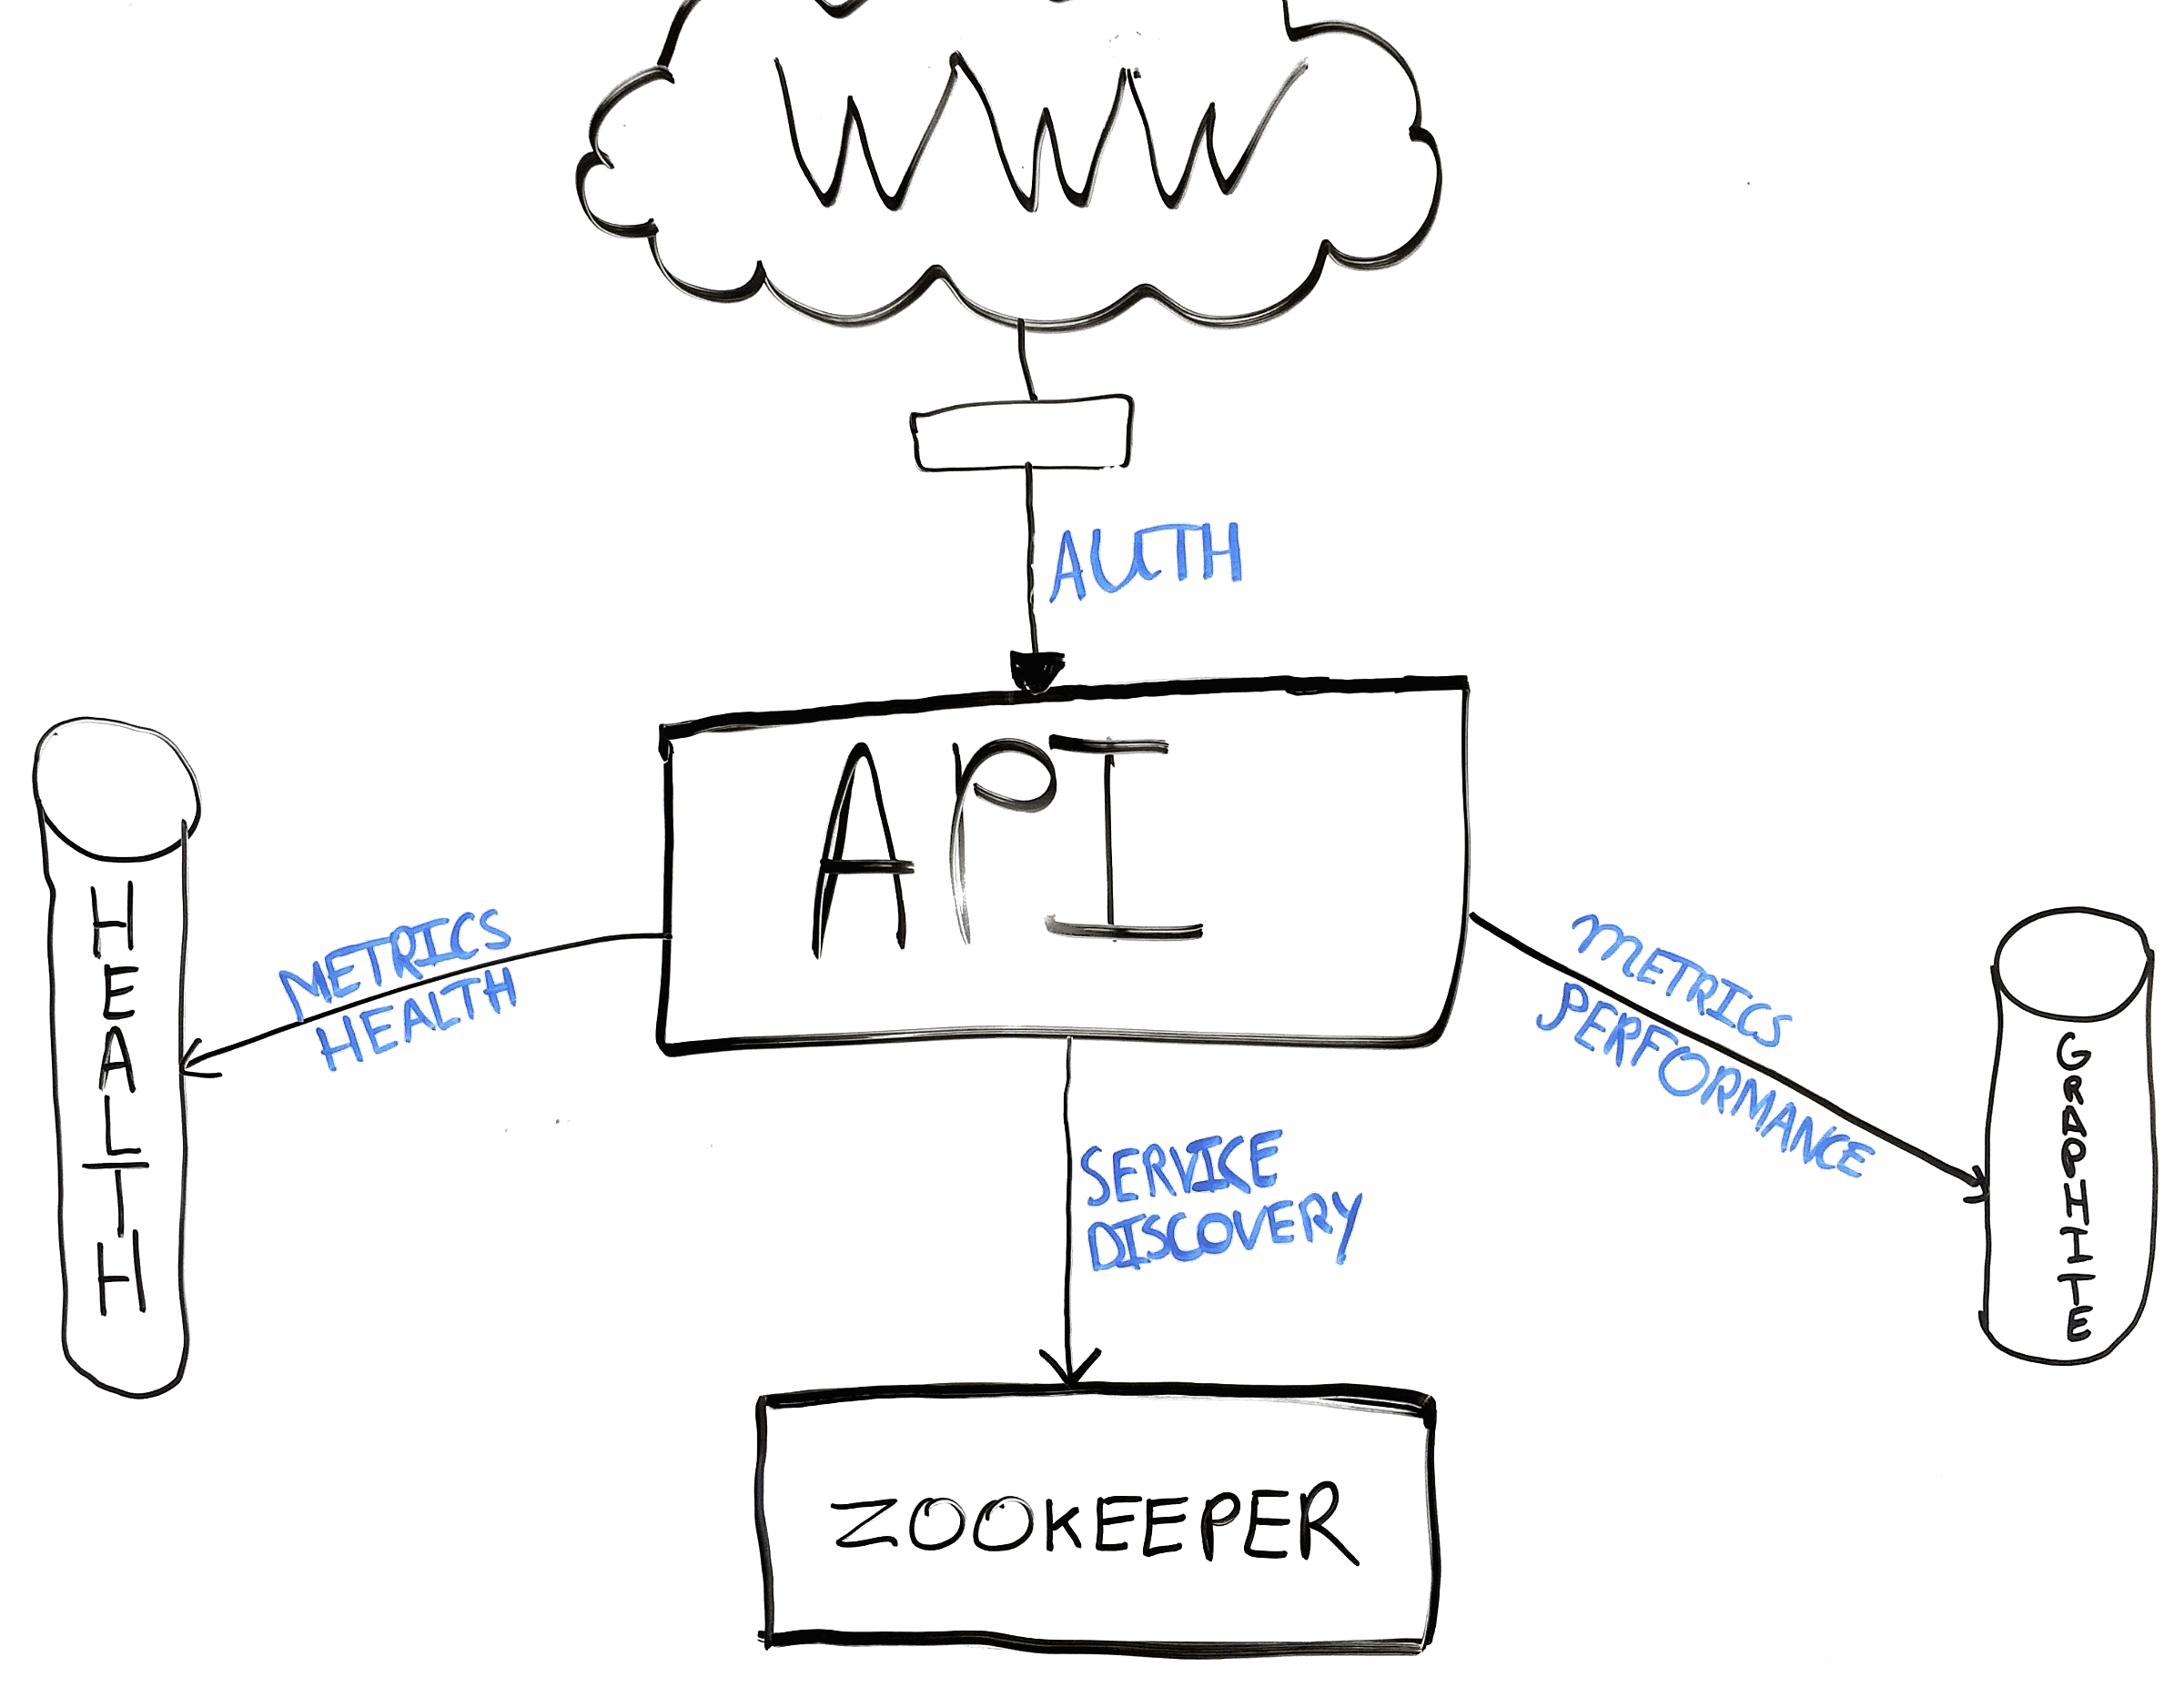 WWW
AUTH
API
HEALTH
METRICS
HEALTH
METRICS
PERFORMANCE
GRAPHITE
SERVICE
DISCOVERY
ZOOKEEPER